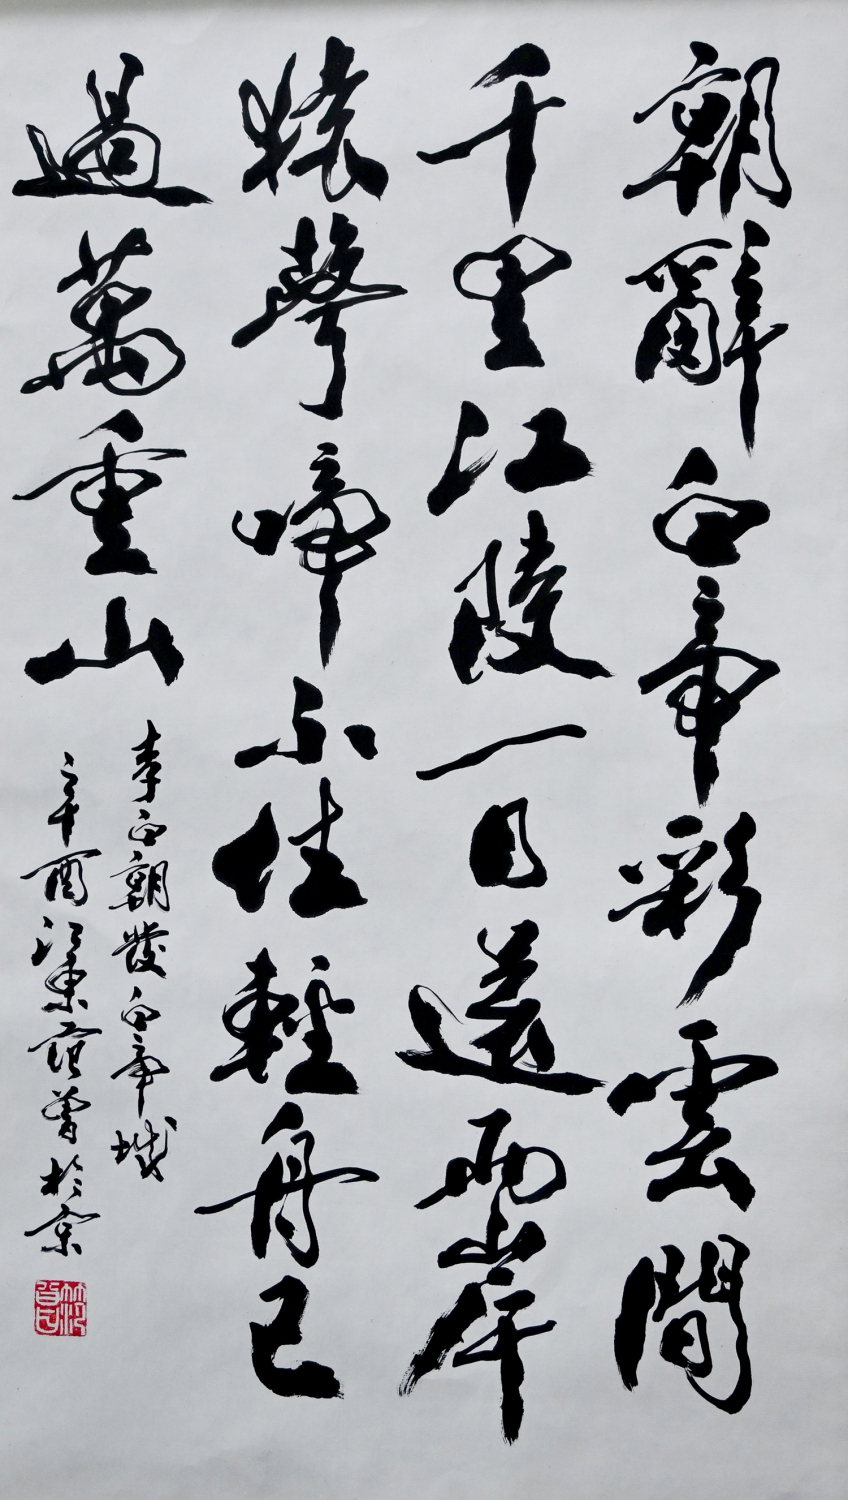 朝辭白帝彩雲間
千里江陵一日還兩岸
猿聲啼不住輕舟已
過萬重山
李白朝發白帝城
辛酉江東范曾於京